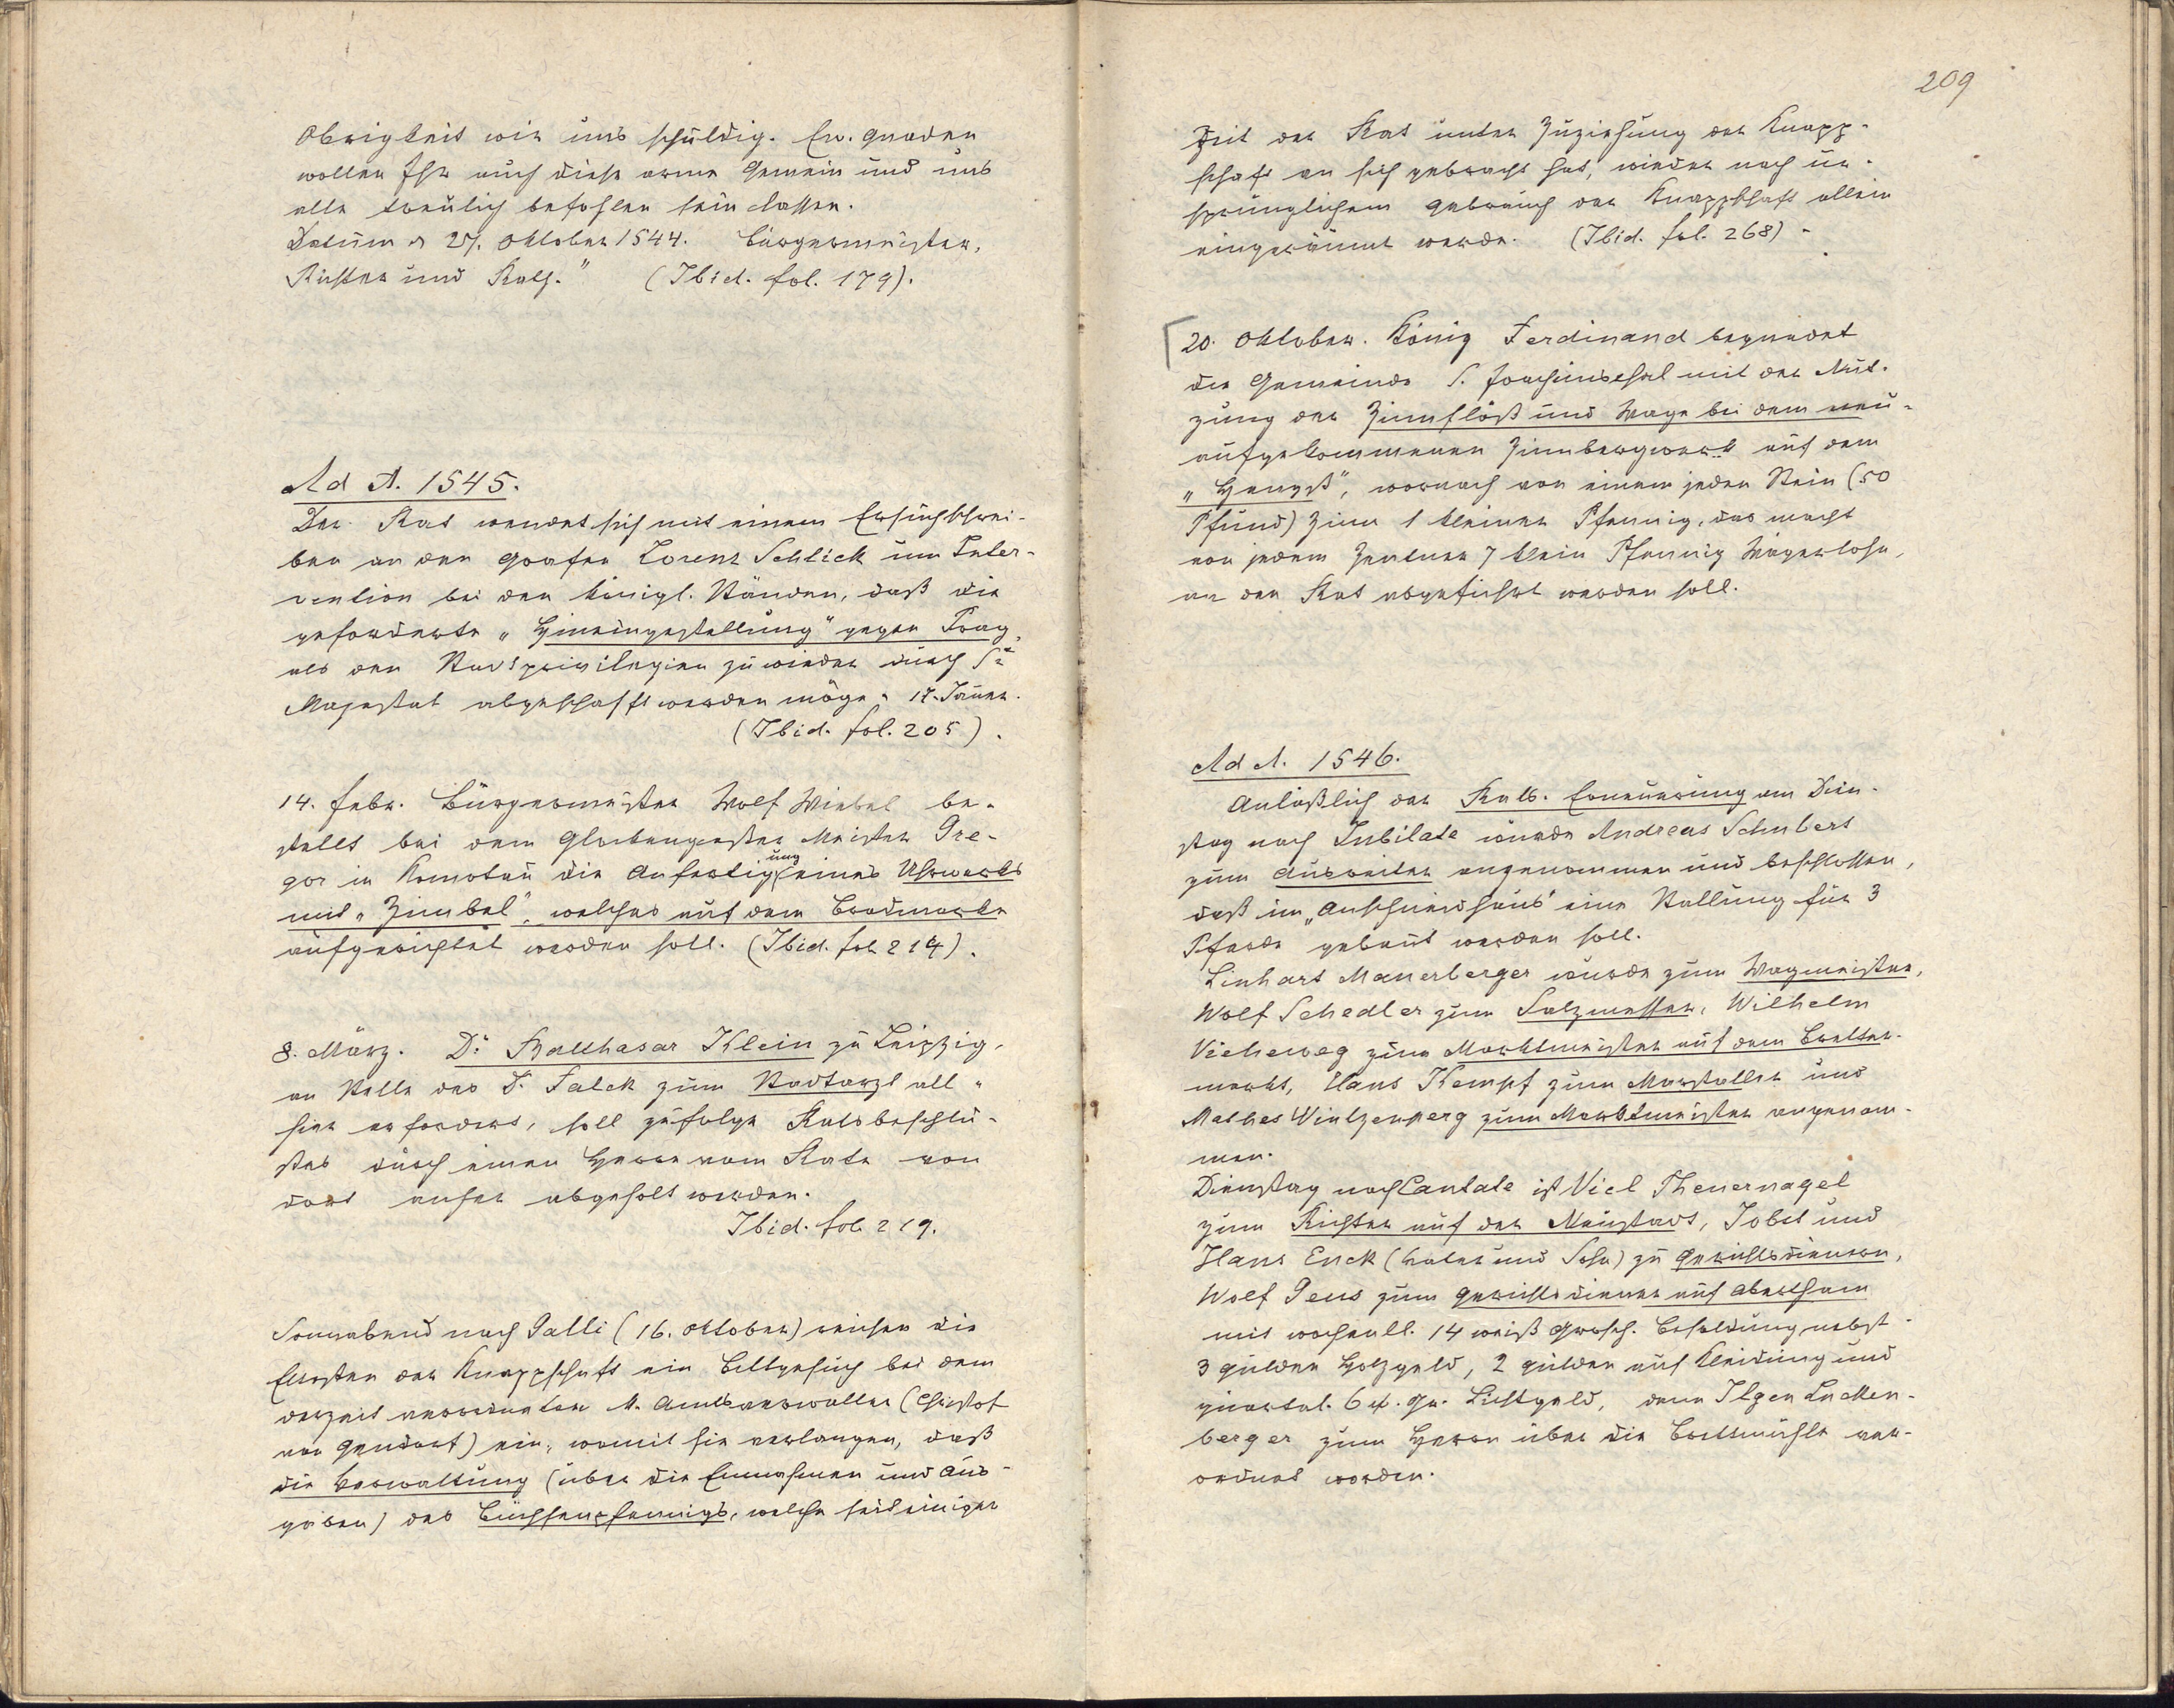 Obrigkeit wir uns schuldig. Ew. Gnaden
wollen Ihr auch diese arme Gemein und uns
alle treulich befohlen sein lassen.
Datum d 27. Oktober 1544. Bürgermeister,
Richter und Rath." (Ibid. fol. 179).
Ad A. 1545.
Der Rat wendet sich mit einem Ersuchschrei-
ben an den Grafen Lorenz Schlick um Inter-
vention bei den königl. Ständen, daß die
geforderte „Hineingestellung" gegen Prag,
als den Stadtprivilegien zuwieder durch Se
Majestät abgeschafft werden möge. 17. Jäner.
(Ibid. fol. 205).
14. Febr. Bürgermeister Wolf Wiebel be-
stellt bei dem Glockengießer Meister Gre-
gor in Komotau die Anfertigung eines Uhrwerks
mit „Zimbel", welches auf dem Brodmarkte
aufgerichtet werden soll. (Ibid. fol. 214).
8. März. Dr. Balthasar Klein zu Leipzig,
an Stelle des D. Falck zum Stadtarzt all-
hier erfordert, soll zufolge Ratsbeschlu-
ßes durch einen Herrn vom Rate von
dort anher abgeholt werden.
Ibid. fol. 219.
Sonnabend nach Galli (16. Oktober) reichen die
Eltesten der Knappschaft ein Bittgesuch bei dem
derzeit verordneten M. Amtsverwalter (Christof
von Gendorf) ein, womit sie verlangen, daß
die Verwaltung (über die Einnahmen und Aus-
gaben) des Büchsenpfennigs, welche seit einiger
209
Zeit der Rat unter Zuziehung der Knapp-
schaft an sich gebracht hat, wieder nach ur-
sprünglichem Gebrauch der Knappschaft allein
eingeräumt werde. (Ibid. fol. 268).
20. Oktober. König Ferdinand begnadet
die Gemeinde S. Joachimsthal mit der Nut-
zung der Zinnflöß und Wage bei dem neu-
aufgekommenen Zinnbergwerk auf dem
„Hengst", wornach von einem jeden Stein (50
Pfund) Zinn 1 kleiner Pfennig, das macht
von jedem Zentner 7 klein Pfennig Wägerlohn,
an den Rat abgeführt werden soll.
Ad A. 1546.
Anläßlich der Rats-Erneuerung am Dien-
stag nach Jubilate wurde Andreas Schubert
zum Ausreiter angenommen und beschlossen,
daß im „Anschneidhaus" eine Stallung für 3
Pferde gebaut werden soll.
Linhart Manerberger wurde zum Wagmeister,
Wolf Schedler zum Salzmesser, Wilhelm
Vieheweg zum Marktmeister auf dem Bretter-
markt, Hans Kempf zum Marstaller und
Mathes Wintzenperg zum Marktmeister angenom-
men.
Dienstag nach Cantate ist Viel Theuernagel
zum Richter auf der Neustadt, Jobst und
Hans Enck (Vater und Sohn) zu Gerichtsdienern,
Wolf Geus zum Gerichtsdiener auf Abertham
mit wochentl. 14 weiß Grosch. Besoldung nebst
3 Gulden Holzgeld, 2 Gulden auf Kleidung und
quartal. 6 w. Gr. Lichtgeld, dann Ilgen Lucken-
berger zum Herrn über die Brettmühle ver-
ordnet worden.